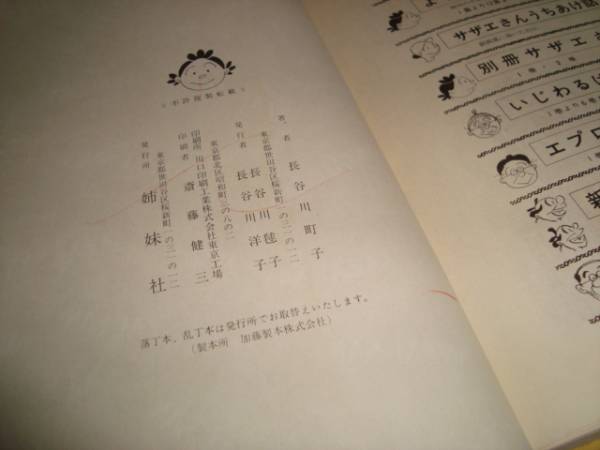 不許複製転載
著者 長谷川町子
東京都世田谷区桜新町一の三一の一二
発行者 長谷川毬子
長谷川洋子
東京都北区昭和町三の八の二
印刷所 川口印刷工業株式会社東京工場
印刷者 斎藤健三
東京都世田谷区桜新町一の三一の一二
発行所 姉妹社
落丁本、乱丁本は発行所でお取替えいたします。
(製本所 加藤製本株式会社)
よ
サザエさんうちあけ話
別冊サザエさ
いじわるば
エプロ
新